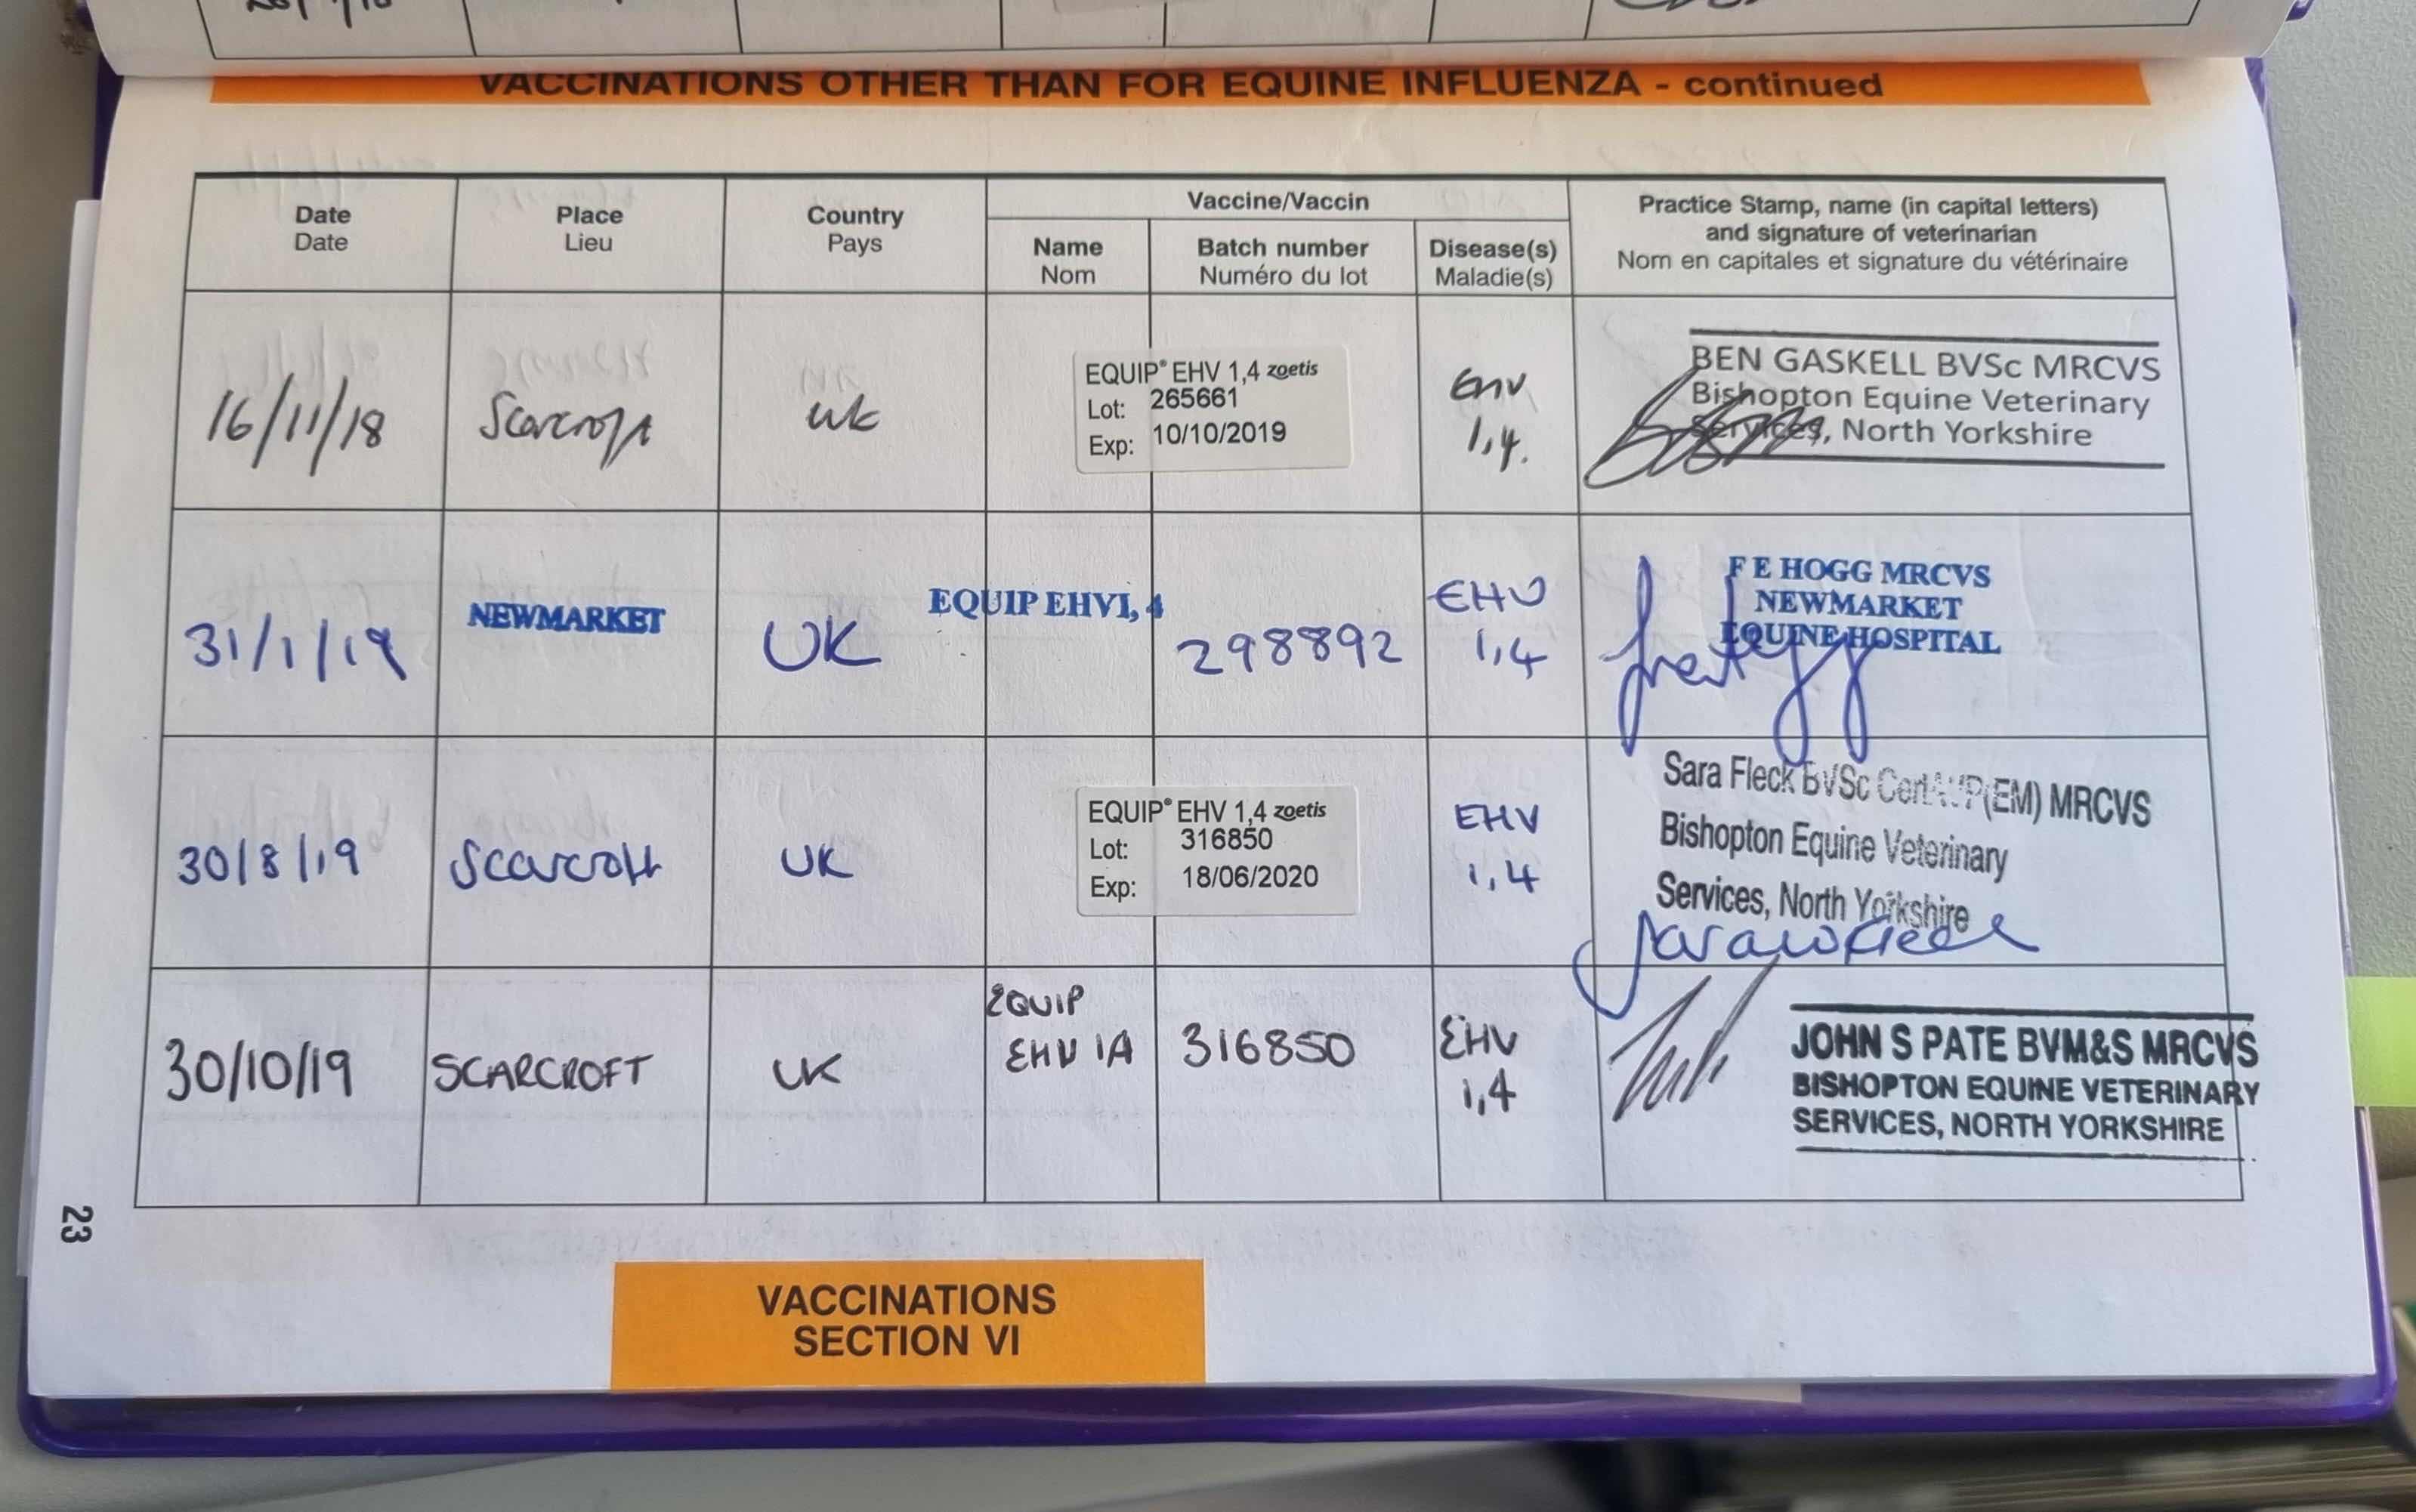 VACCINATIONS OTHER THAN FOR EQUINE INFLUENZA - continued
Date
Date
Place
Lieu
Country
Pays
Vaccine/Vaccin
Name
Nom
Batch number
Numéro du lot
Disease(s)
Maladie(s)
Practice Stamp, name (in capital letters)
and signature of veterinarian
Nom en capitales et signature du vétérinaire
16/11/18
Scarcroft
UK
EQUIP® EHV 1,4 zoetis
Lot: 265661
Exp: 10/10/2019
EHV
1,4.
BEN GASKELL BVSc MRCVS
Bishopton Equine Veterinary
Services, North Yorkshire
31/1/19
NEWMARKET
UK
EQUIP EHV1, 4
298892
EHV
1,4
F E HOGG MRCVS
NEWMARKET
EQUINE HOSPITAL
30/8/19
Scarcroft
UK
EQUIP® EHV 1,4 zoetis
Lot: 316850
Exp: 18/06/2020
EHV
1,4
Sara Fleck BVSc CertAVP(EM) MRCVS
Bishopton Equine Veterinary
Services, North Yorkshire
30/10/19
SCARCROFT
UK
EQUIP
EHV 1,4
316850
EHV
1,4
JOHN S PATE BVM&S MRCVS
BISHOPTON EQUINE VETERINARY
SERVICES, NORTH YORKSHIRE
23
VACCINATIONS
SECTION VI